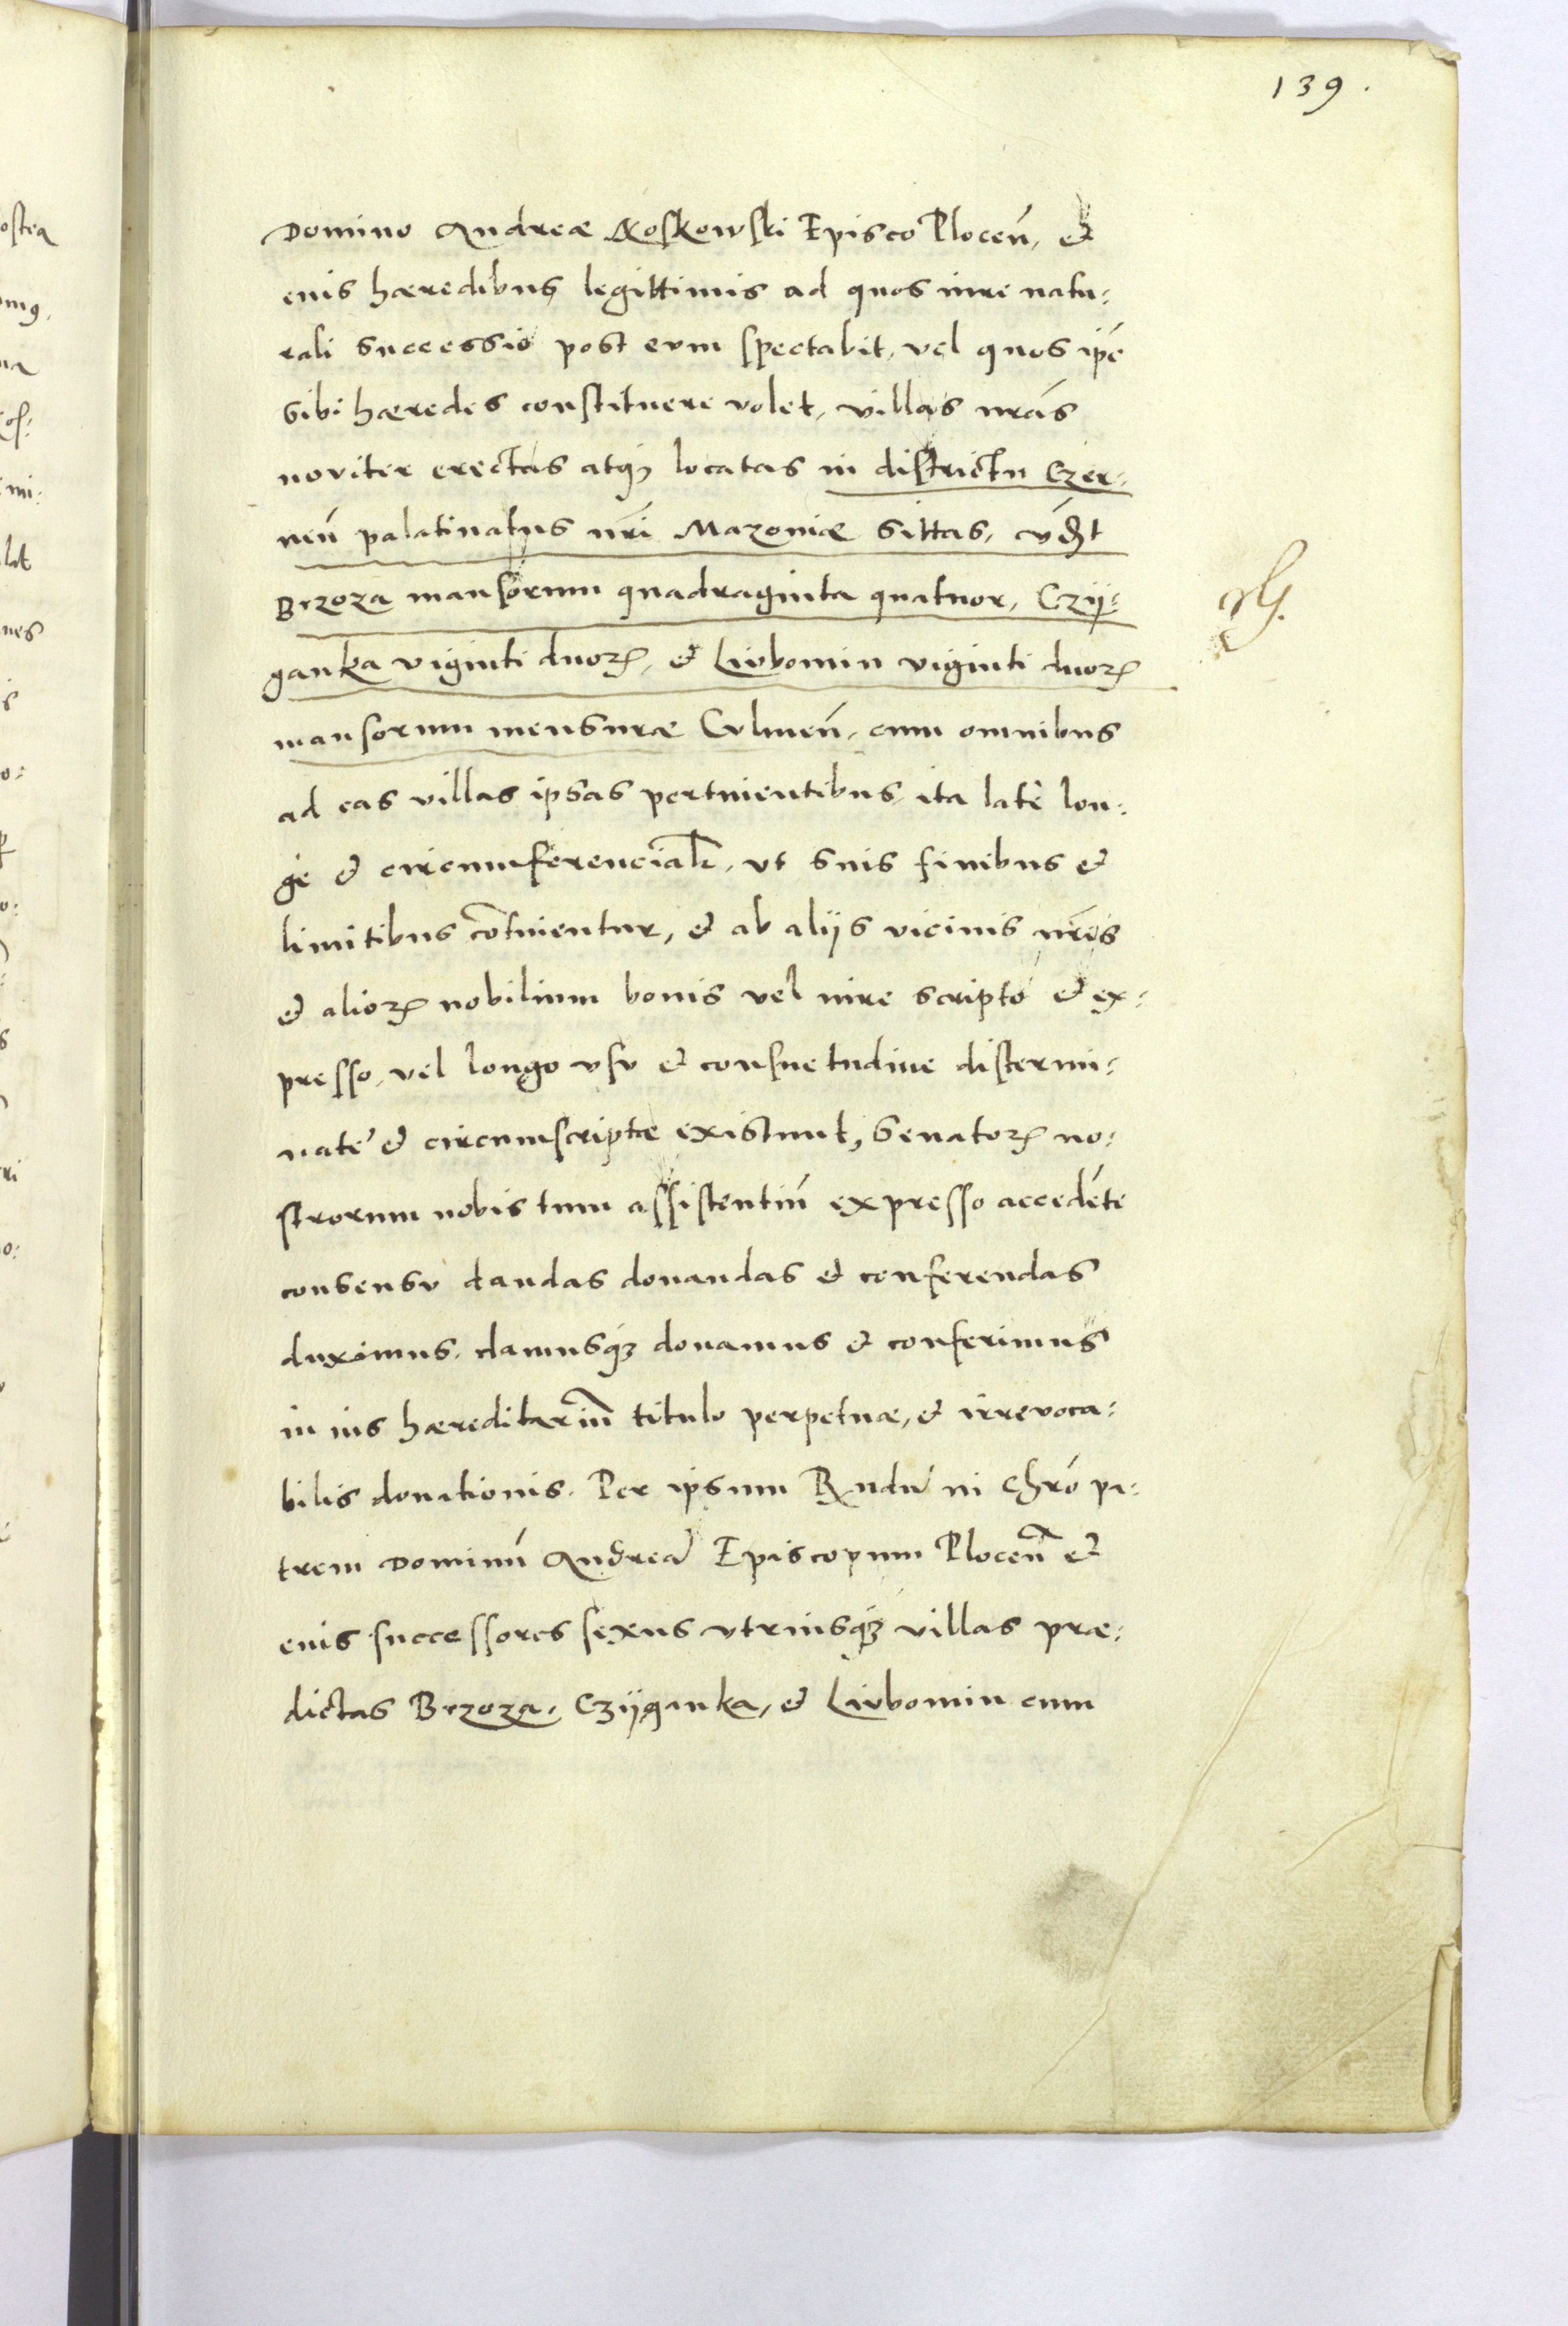 139.
Domino Andreæ Noskowski Episco Plocen̄, et
eius hæredibus legittimis ad quos iure natu:
rali successio post eum spectabit, vel quos ip̄e
sibi hæredes constituere volet, villas nr̄as
noviter erectas atq; locatas in districtu Czer:
nen̄ palatinatus nr̄i Mazoviæ sittas, vꝫt
Brzoza mansorum quadraginta quatuor, Czÿ:
ganka viginti duoꝝ, et Liubomin viginti duoꝝ
mansorum mensuræ Culmen̄, cum omnibus
ad eas villas ipsas pertinientibus, ita latè lon:
gè et circumferencialr, ut suis finibus et
limitibus cōtinientur, et ab aliis vicinis nr̄is
et alioꝝ nobilium bonis vel iure scripto et ex:
presso, vel longo usu et consuetudine distermi:
nate et circumscriptæ existunt, Senatoꝝ no:
strorum nobis tum assistentiū expresso accedēte
consensu dandas donandas et conferendas
duximus, damusq; donamus et conferimus
in ius hæreditariū titulo perpetuæ, et irrevoca:
bilis donationis. Per ipsum Rndū in Chrō pa:
trem Dominū Andreā Episcopum Plocen̄ et
eius successores sexus utriusq; villas præ:
dictas Brzoza, Czÿganka, et Liubomin cum